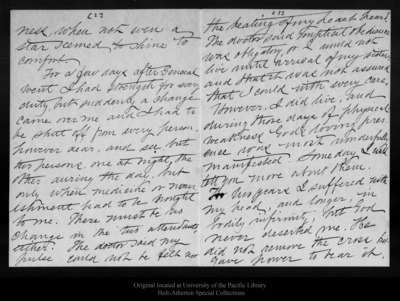 (22)
ness, when not even a
star seemed to shine to
comfort.
For a few days after General
went I had strength for every
duty, but suddenly a change
came over me and I had to
be shut off from every person
however dear, and see but
two persons, one at night, the
other during the day, but
only when medicine or nour-
ishment had to be brought
to me. There must be no
change in the two attendants
either. The doctor said my
pulse could not be felt and
the beating of my heart heard.
The doctor said implicit obedience
was obligatory, or I would not
live until arrival of my sister,
and that it was not assured
that I could with every care.
However, I did live, and
during those days of physical
weakness God's loving pres-
ence was most wonderfully
manifested. Some day I will
tell you more about them.
years I suffered with
my head, and longer, in
bodily infirmity, but God
never deserted me. He
did not remove the cross but
gave power to bear it.
Original located at University of the Pacific Library
Holt-Atherton Special Collections